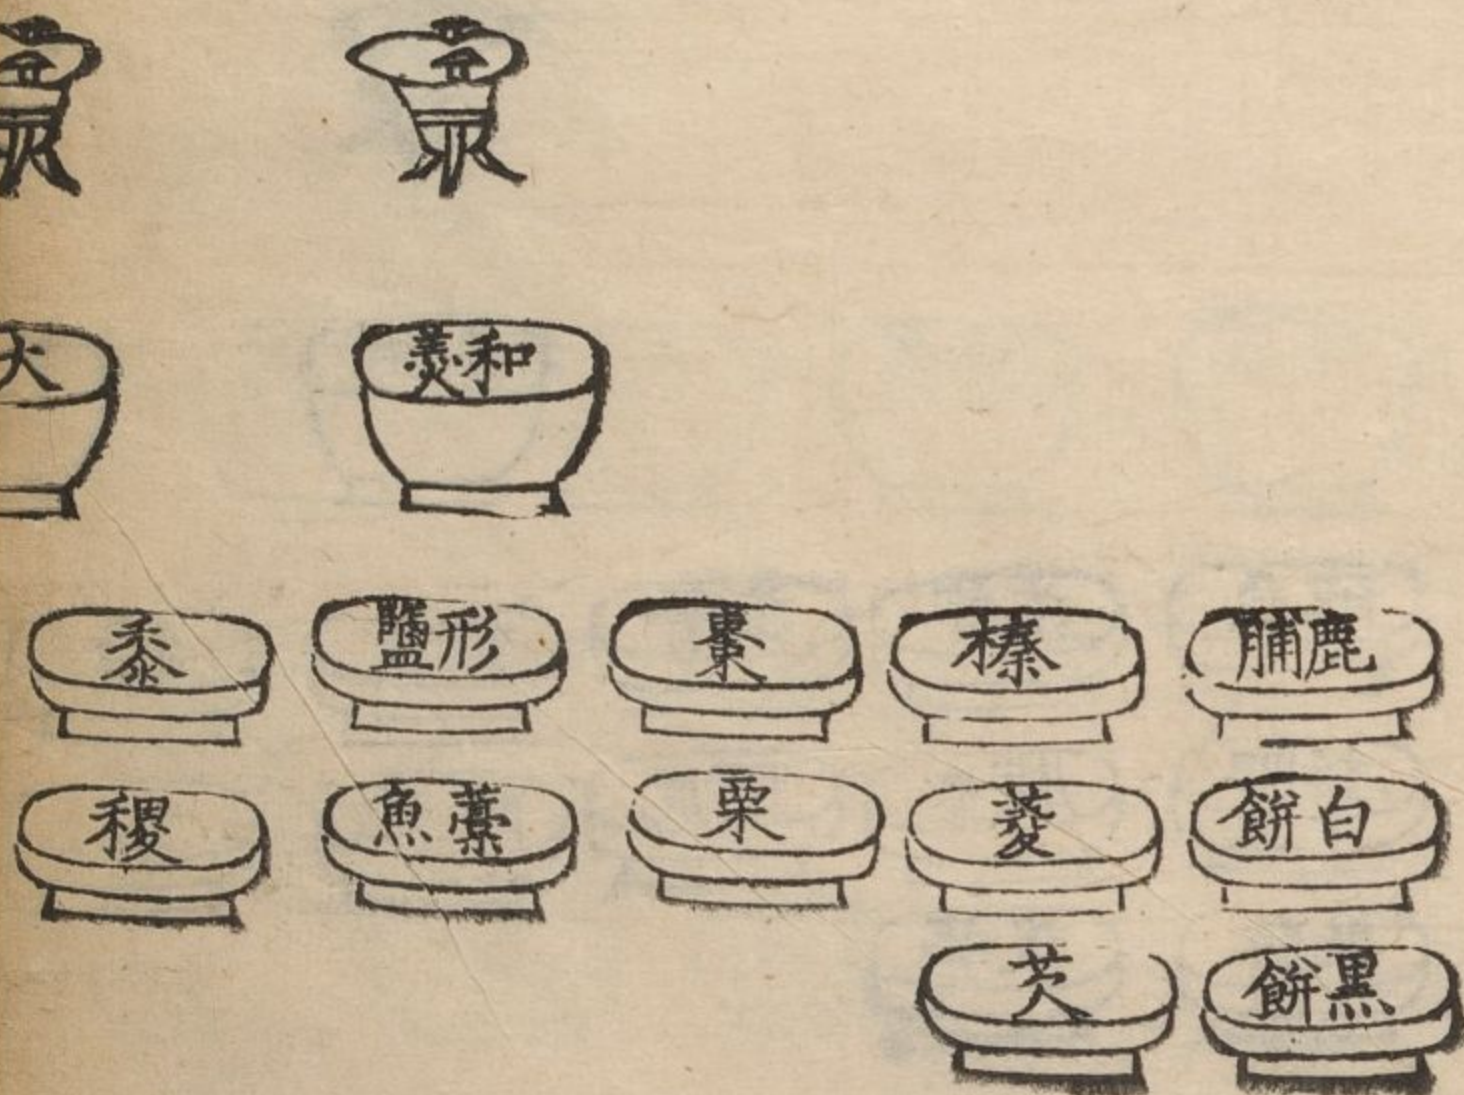 和羹
大
鹿脯
榛
棗
形鹽
黍
白餅
菱
栗
藁魚
稷
黑餅
芡